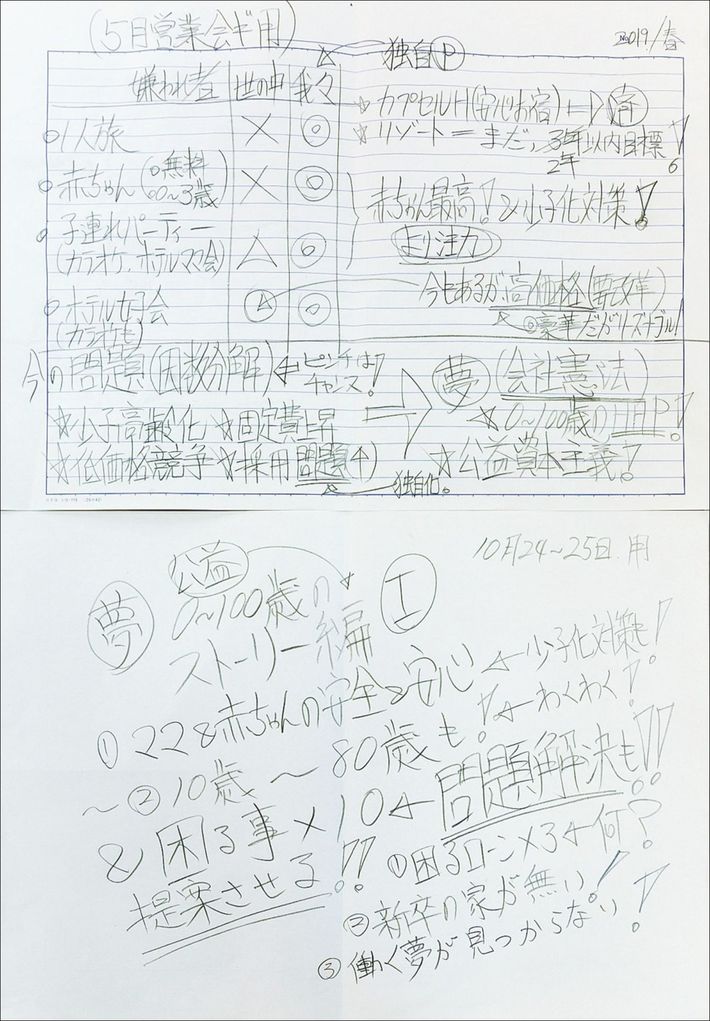 (5月営業会ギ用)
2019/春
独自P
嫌われ者 世の中 我々
1人旅 × ◎
赤ちゃん(◎無料 0〜3歳) × ◎
子連れパーティー
(カラオケ、ホテルママ会) △ ◎
ホテル女子会
(カラオケも) △ ◎
☆カプセルH(安心お宿)
☆リゾート=まだ,3年以内目標!
2年
赤ちゃん最高!&少子化対策!
より注力
今もあるが高価格(要改革)
◎豪華だがリーズナブル!
今の問題(因数分解)←ピンチはチャンス!
☆少子高齢化 ☆固定費上昇
☆低価格競争 ☆採用問題(4)
独自化。
⇒ 夢 (会社憲法)
☆0〜100歳のHP!
☆公益資本主義!
10月24〜25日.用
公益
夢 0〜100歳の
ストーリー編 I
①ママ&赤ちゃんの安全&安心←少子化対策も!
〜②10歳〜80歳も!←わくわく!
&困る事×10←問題解決も!!
提案させる!!
①困るローン×3←何?
②新卒の家が無い!
③働く夢が見つからない!